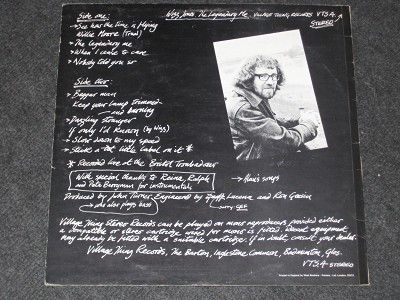 Side one: Wizz Jones The Legendary Me. Village Thing Records VTS 4
STEREO
See how the time is flying
Willie Moore (Trad)
The legendary me
When I cease to care
Nobody told you so
Side two:
Beggar man
Keep your lamp trimmed
and burning
Dazzling stranger
If only I'd known (by Wizz)
Slow down to my speed
Stick a little label on it *
* Recorded live at the Bristol Troubadour
With special thanks to Reina, Ralph
and Pete Berryman for instrumentals
→ Alan's songs
Produced by John Turner Engineered by Geoff Lucena and Ken
she also plays bass sorry: GEF
Village Thing Stereo Records can be played on mono reproducers provided either
a compatible or stereo cartridge wired for mono is fitted. Recent equipment
may already be fitted with a suitable cartridge. If in doubt, consult your dealer.
Village Thing Records, The Barton, Inglestone Common, Badminton, Glos.
VTS.4 STEREO